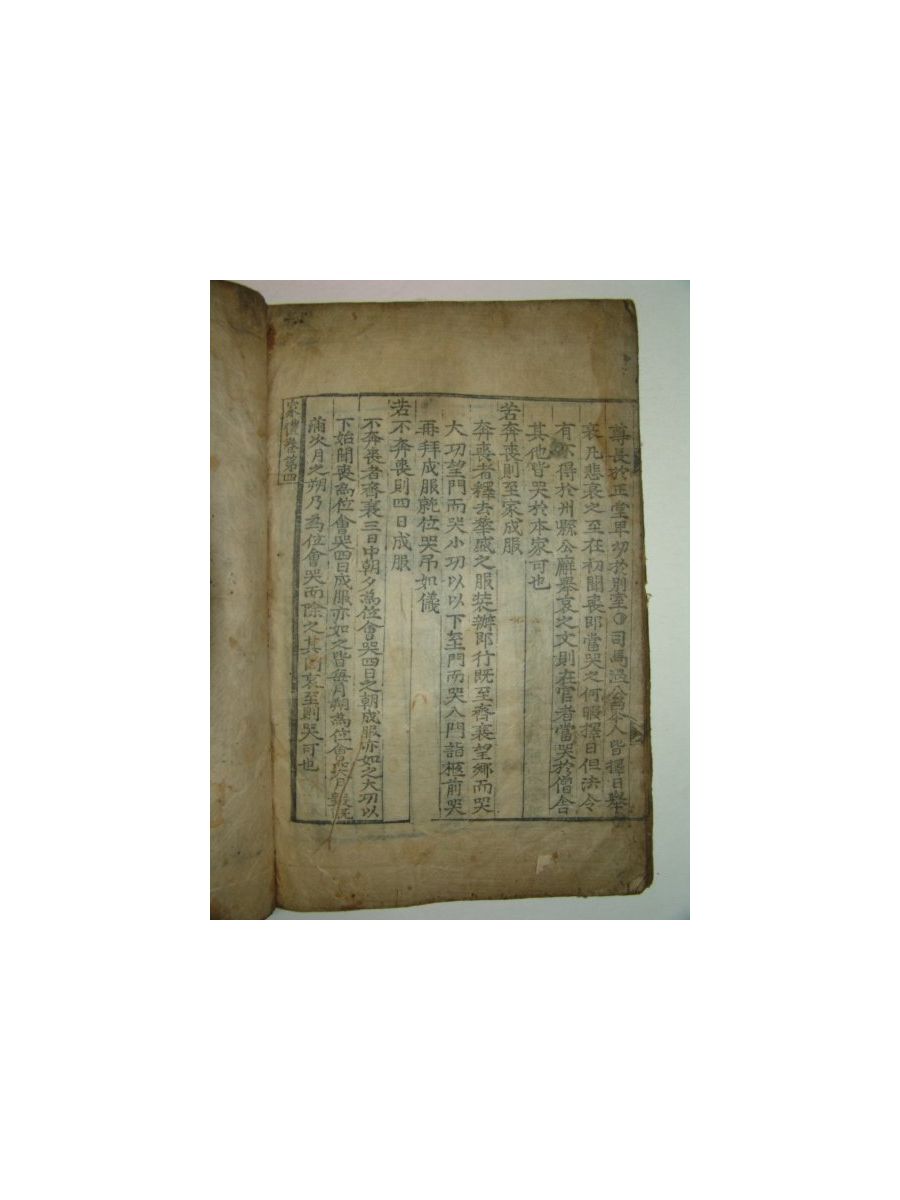 尊長於正堂卑幼於別室○司馬溫公曰今人皆擇日舉
哀凡悲哀之至在初聞喪即當哭之何暇擇日但法令
有不得於州縣公廨舉哀之文則在官者當哭於僧舍
其他皆哭於本家可也
若奔喪則至家成服
奔喪者釋去華盛之服裝辦即行既至齊衰望鄉而哭
大功望門而哭小功以下至門而哭入門詣柩前哭
再拜成服就位哭吊如儀
若不奔喪則四日成服
不奔喪者齊衰三日中朝夕為位會哭四日之朝成服亦如之大功以
下始聞喪為位會哭四日成服亦如之皆每月朔為位會哭月數既
滿次月之朔乃為位會哭而除之其間哀至則哭可也
家禮卷第四